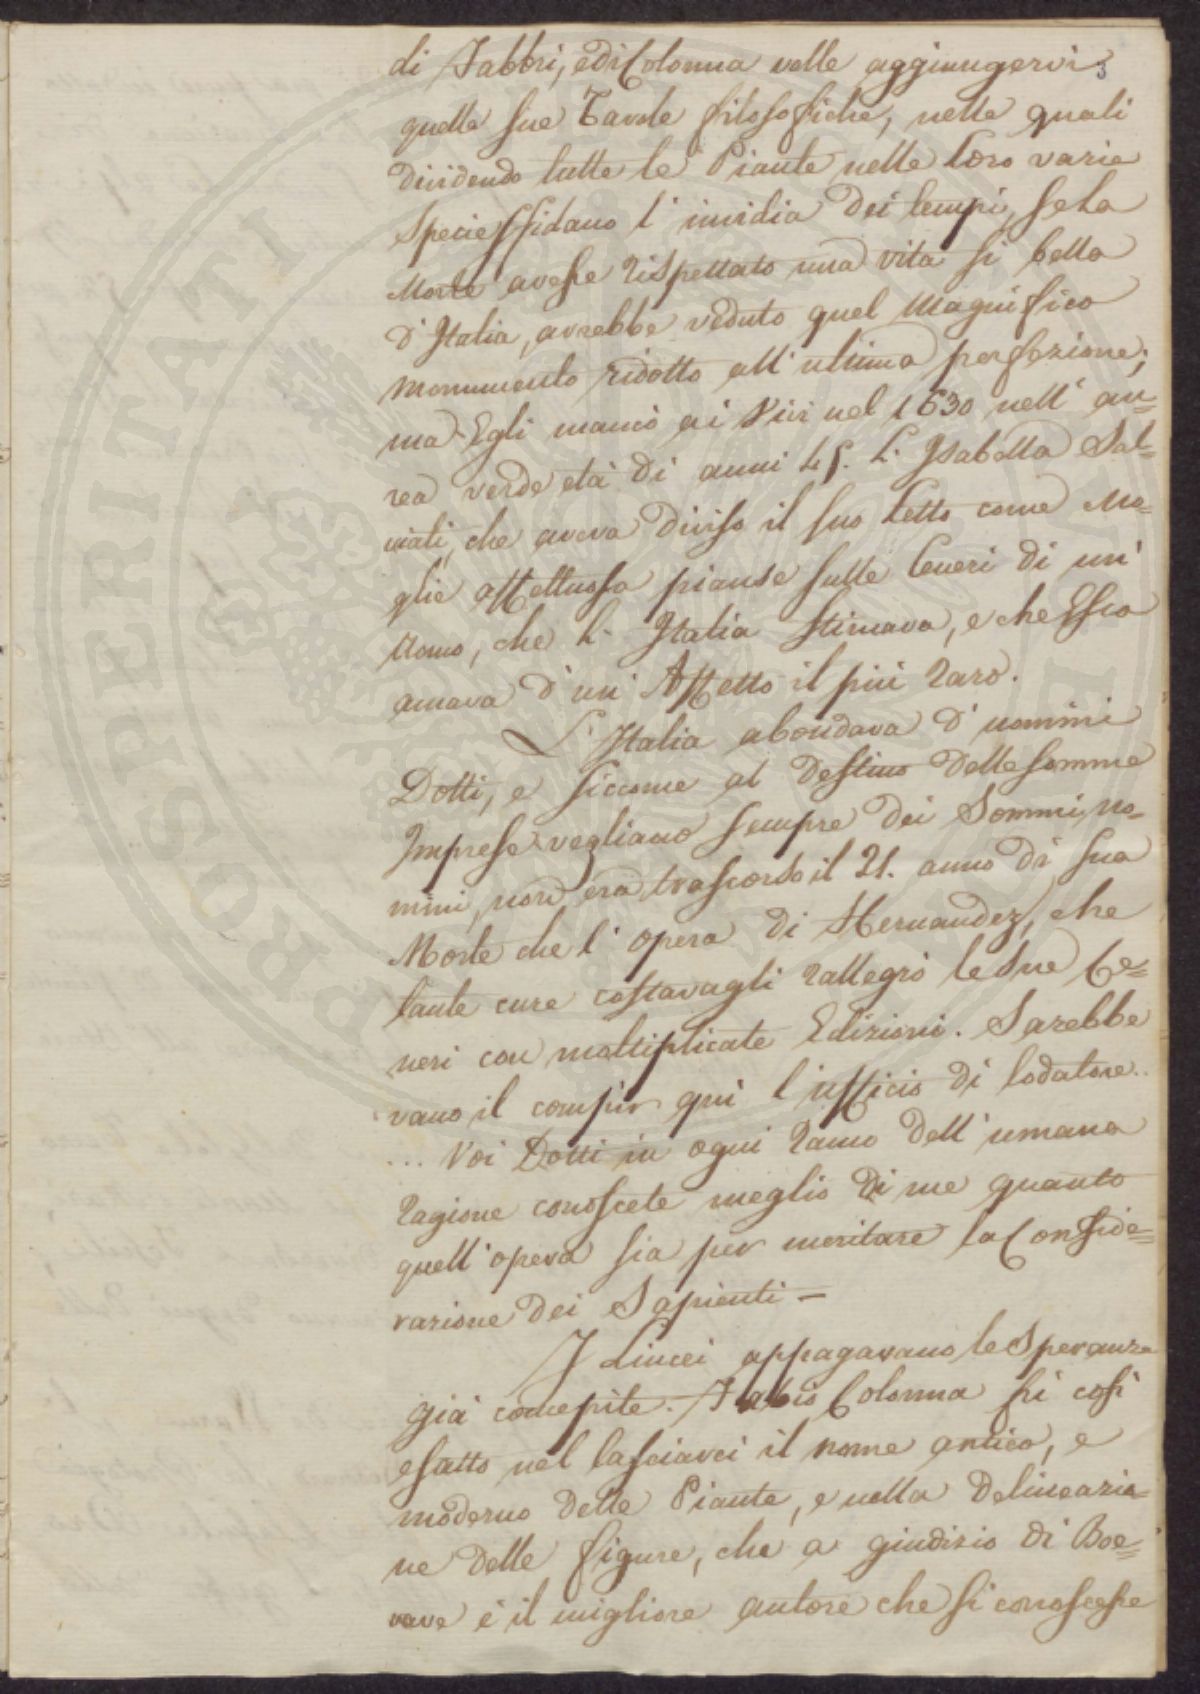 di Fabbri, e di Colonna volle aggiungervi
quelle sue Tavole filosofiche, nelle quali
dividendo tutte le Piante nelle loro varie
Specie sfidano l'invidia dei tempi, se la
Morte avesse rispettato una vita sì bella
d'Italia, avrebbe veduto quel magnifico
monumento ridotto all'ultima perfezione;
ma Egli mancò ai Vivi nel 1630 nell'au=
rea verde età di anni 45. L'Isabella Sal=
viati, che aveva diviso il suo letto come Mo=
glie affettuosa pianse sulle Ceneri di un'
Uomo, che l'Italia stimava, e che Essa
amava d'un' Affetto il più raro.
L'Italia abondava d'uomini
Dotti, e siccome al destino delle somme
Imprese vegliano sempre dei Sommi uo=
mini, non era trascorso il 21. anno di sua
Morte che l'opera di Hernandez, che
tante cure costavagli rallegrò le sue Ce=
neri con moltiplicate Edizioni. Sarebbe
vano il compir quì l'ufficio di lodatore..
... Voi Dotti in ogni ramo dell'umana
ragione conoscete meglio di me quanto
quell'opera sia per meritare la Conside=
razione dei Sapienti —
I Lincei appagavano le Speranze
già concepite. Fabio Colonna fù così
esatto nel lasciarci il nome antico, e
moderno delle Piante, e nella delineazio=
ne delle figure, che a giudizio di Boe=
rave è il migliore autore che si conoscesse